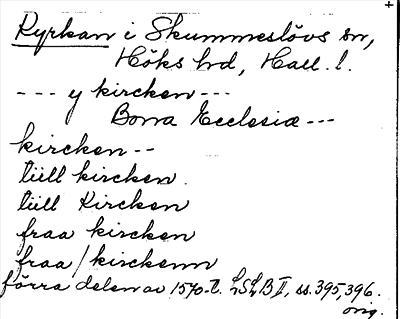 Kyrkan i Skummeslövs sn,
Höks hd, Hall. l.
--- y kircken ---
Borra Ecclesiæ ---
kircken --
tüll kircken.
tüll Kircken
fraa kircken
fraa / kirckenn
förra delen av 1570-t. LSLB II, ss. 395, 396.
orig.